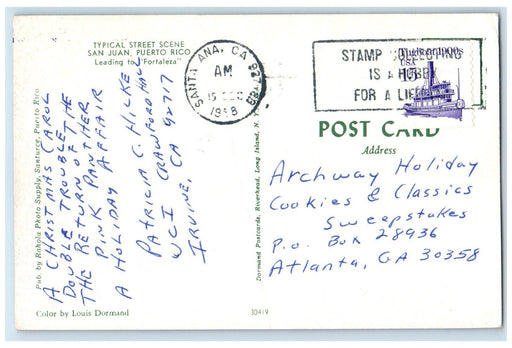 TYPICAL STREET SCENE
SAN JUAN, PUERTO RICO
Leading to "Fortaleza"
Pub. by Rahola Photo Supply, Santurce, Puerto Rico
A CHRISTMAS CAROL
DOUBLE TROUBLE
THE RETURN OF THE
PINK PANTHER
A HOLIDAY AFFAIR
PATRICIA C. HICKE
UCI CRAWFORD HALL
IRVINE, CA 92717
Color by Louis Dormand
SANTA ANA, CA
AM
15 DEC
1988
STAMP COLLECTING
IS A HOBBY
FOR A LIFE
USA
15
POST CARD
Address
Archway Holiday
Cookies & Classics
Sweepstakes
P.O. Box 28936
Atlanta, GA 30358
Dormand Postcards, Riverhead, Long Island, N. Y.
30419